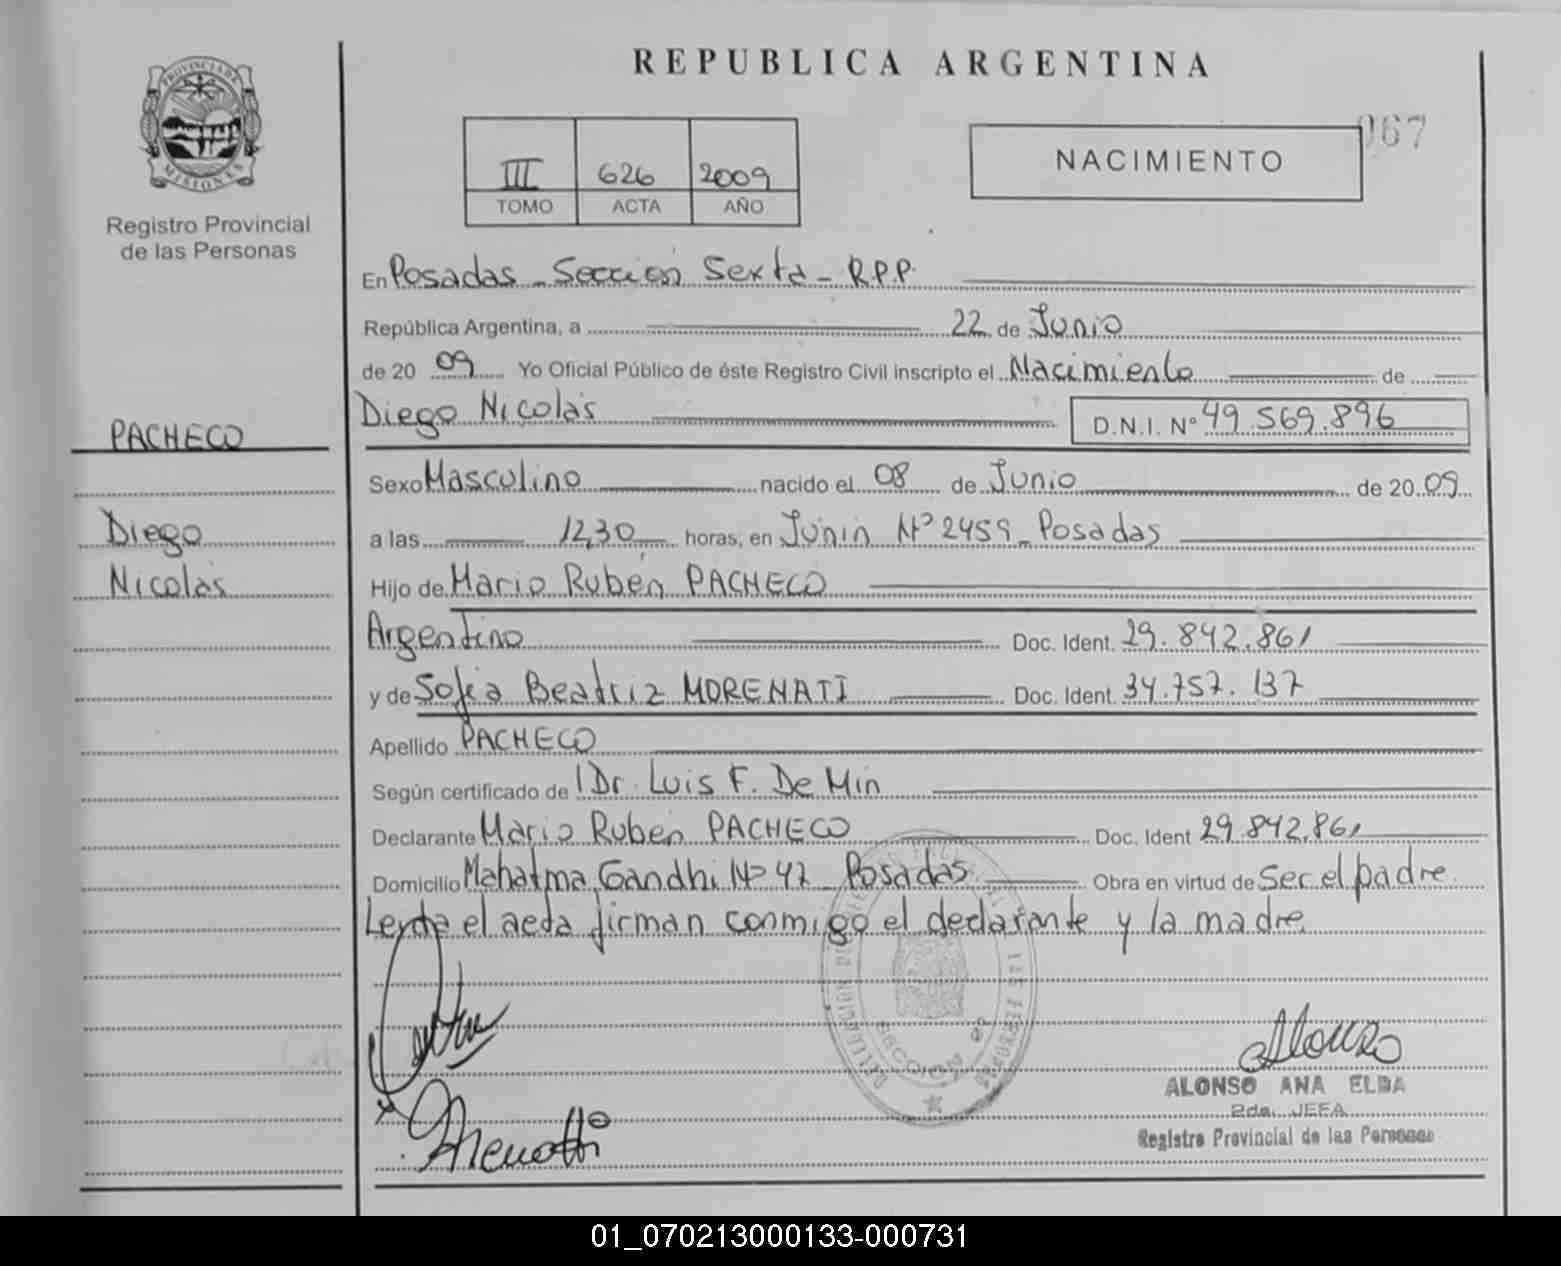 REPUBLICA ARGENTINA
067
PROVINCIA DE
MISIONES
Registro Provincial
de las Personas
III 626 2009
TOMO ACTA AÑO
NACIMIENTO
En Posadas - Sección Sexta - R.P.P.
República Argentina, a 22 de Junio
de 20 09 Yo Oficial Público de éste Registro Civil inscripto el Nacimiento de
Diego Nicolás D.N.I. Nº 49.569.896
PACHECO
Diego
Nicolás
Sexo Masculino nacido el 08 de Junio de 20 09
a las 12,30 horas, en Junín Nº 2459 - Posadas
Hijo de Mario Rubén PACHECO
Argentino Doc. Ident. 29.842.861
y de Sofia Beatriz MORENATI Doc. Ident. 34.757.137
Apellido PACHECO
Según certificado de Dr. Luis F. De Min
Declarante Mario Rubén PACHECO Doc. Ident 29.842.861
Domicilio Mahatma Gandhi Nº 42 - Posadas Obra en virtud de Ser el padre.
Leyda el acta firman conmigo el declarante y la madre.
SECCION 6ª
Alonso
ALONSO ANA ELBA
2da. JEFA
Registro Provincial de las Personas
01_070213000133-000731